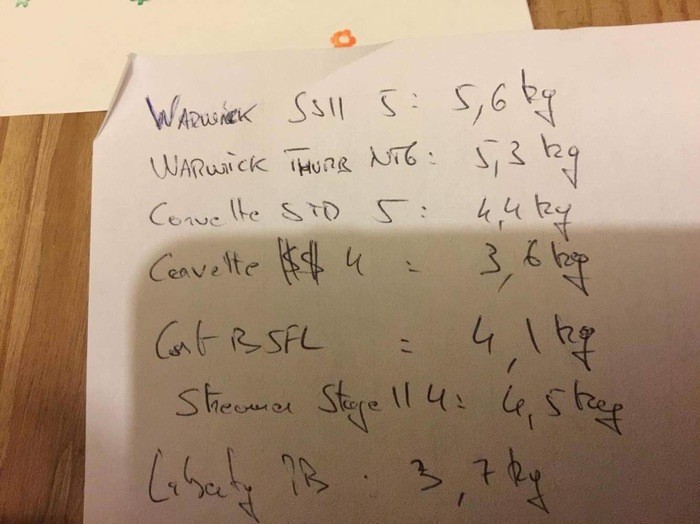 WARWICK SSII 5: 5,6 kg
WARWICK THUMB NT6: 5,3 kg
Corvette STD 5: 4,4 kg
Corvette $$ 4 = 3,6 kg
Cort B5FL = 4,1 kg
Streamer Stage II 4: 4,5 kg
Liberty PB . 3,7 kg